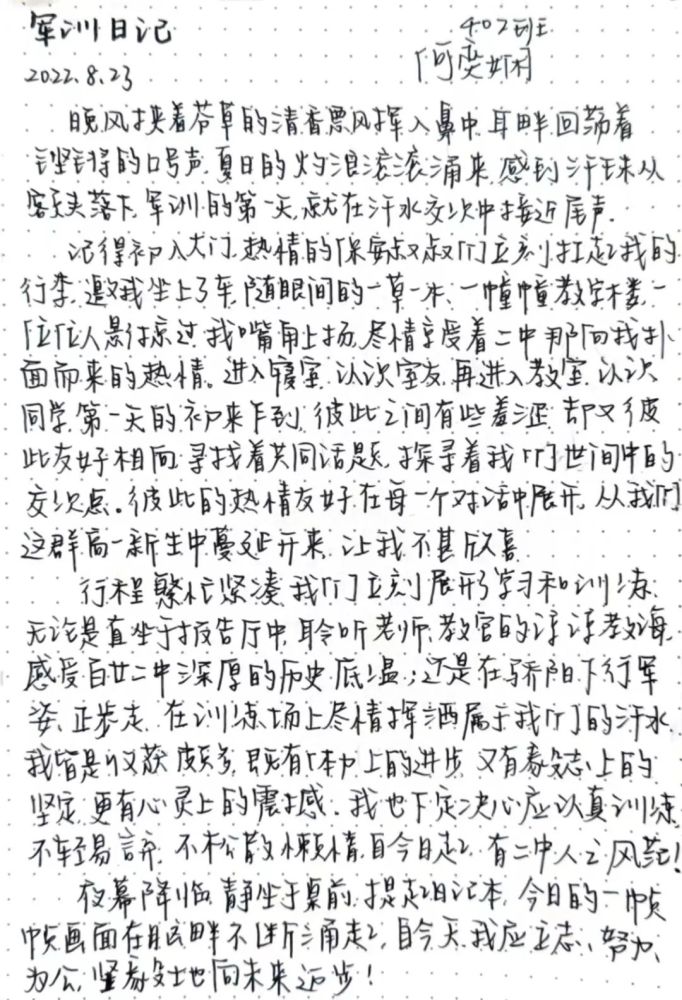 军训日记
402班
2022.8.23
何奕姗
晚风挟着芬草的清香飘风挥入鼻中,耳畔回荡着
铿锵的口号声,夏日的灼浪滚滚涌来,感到汗珠从
额头落下,军训的第一天,就在汗水交织中接近尾声.
记得初入大门,热情的保安叔叔们立刻扛起我的
行李,邀我坐上了车,随眼间的一草一木,一幢幢教学楼,一
位位人影掠过,我嘴角上扬,尽情享受着二中那向我扑
面而来的热情。进入寝室,认识室友,再进入教室,认识
同学,第一天的初来乍到,彼此之间有些羞涩,却又彼
此友好相向,寻找着共同话题,探寻着我们世间中的
交汇点。彼此的热情友好在每一个对话中展开,从我们
这群高一新生中蔓延开来,让我不甚欣喜
行程繁忙紧凑,我们立刻展开了学习和训练.
无论是直坐于报告厅中,聆听老师,教官的谆谆教诲,
感受百廿二中深厚的历史底蕴;还是在骄阳下行军
姿,正步走,在训练场上尽情挥洒属于我们的汗水,
我皆是收获颇多,既有体力上的进步,又有意志上的
坚定,更有心灵上的震撼.我也下定决心应认真训练,
不轻易言弃,不松散懒惰,自今日起,有二中人之风范!
夜幕降临,静坐于桌前,提起日记本,今日的一帧
帧画面在脑畔不断涌起,自今天,我应立志,努力,
为公,坚毅地向未来迈步!